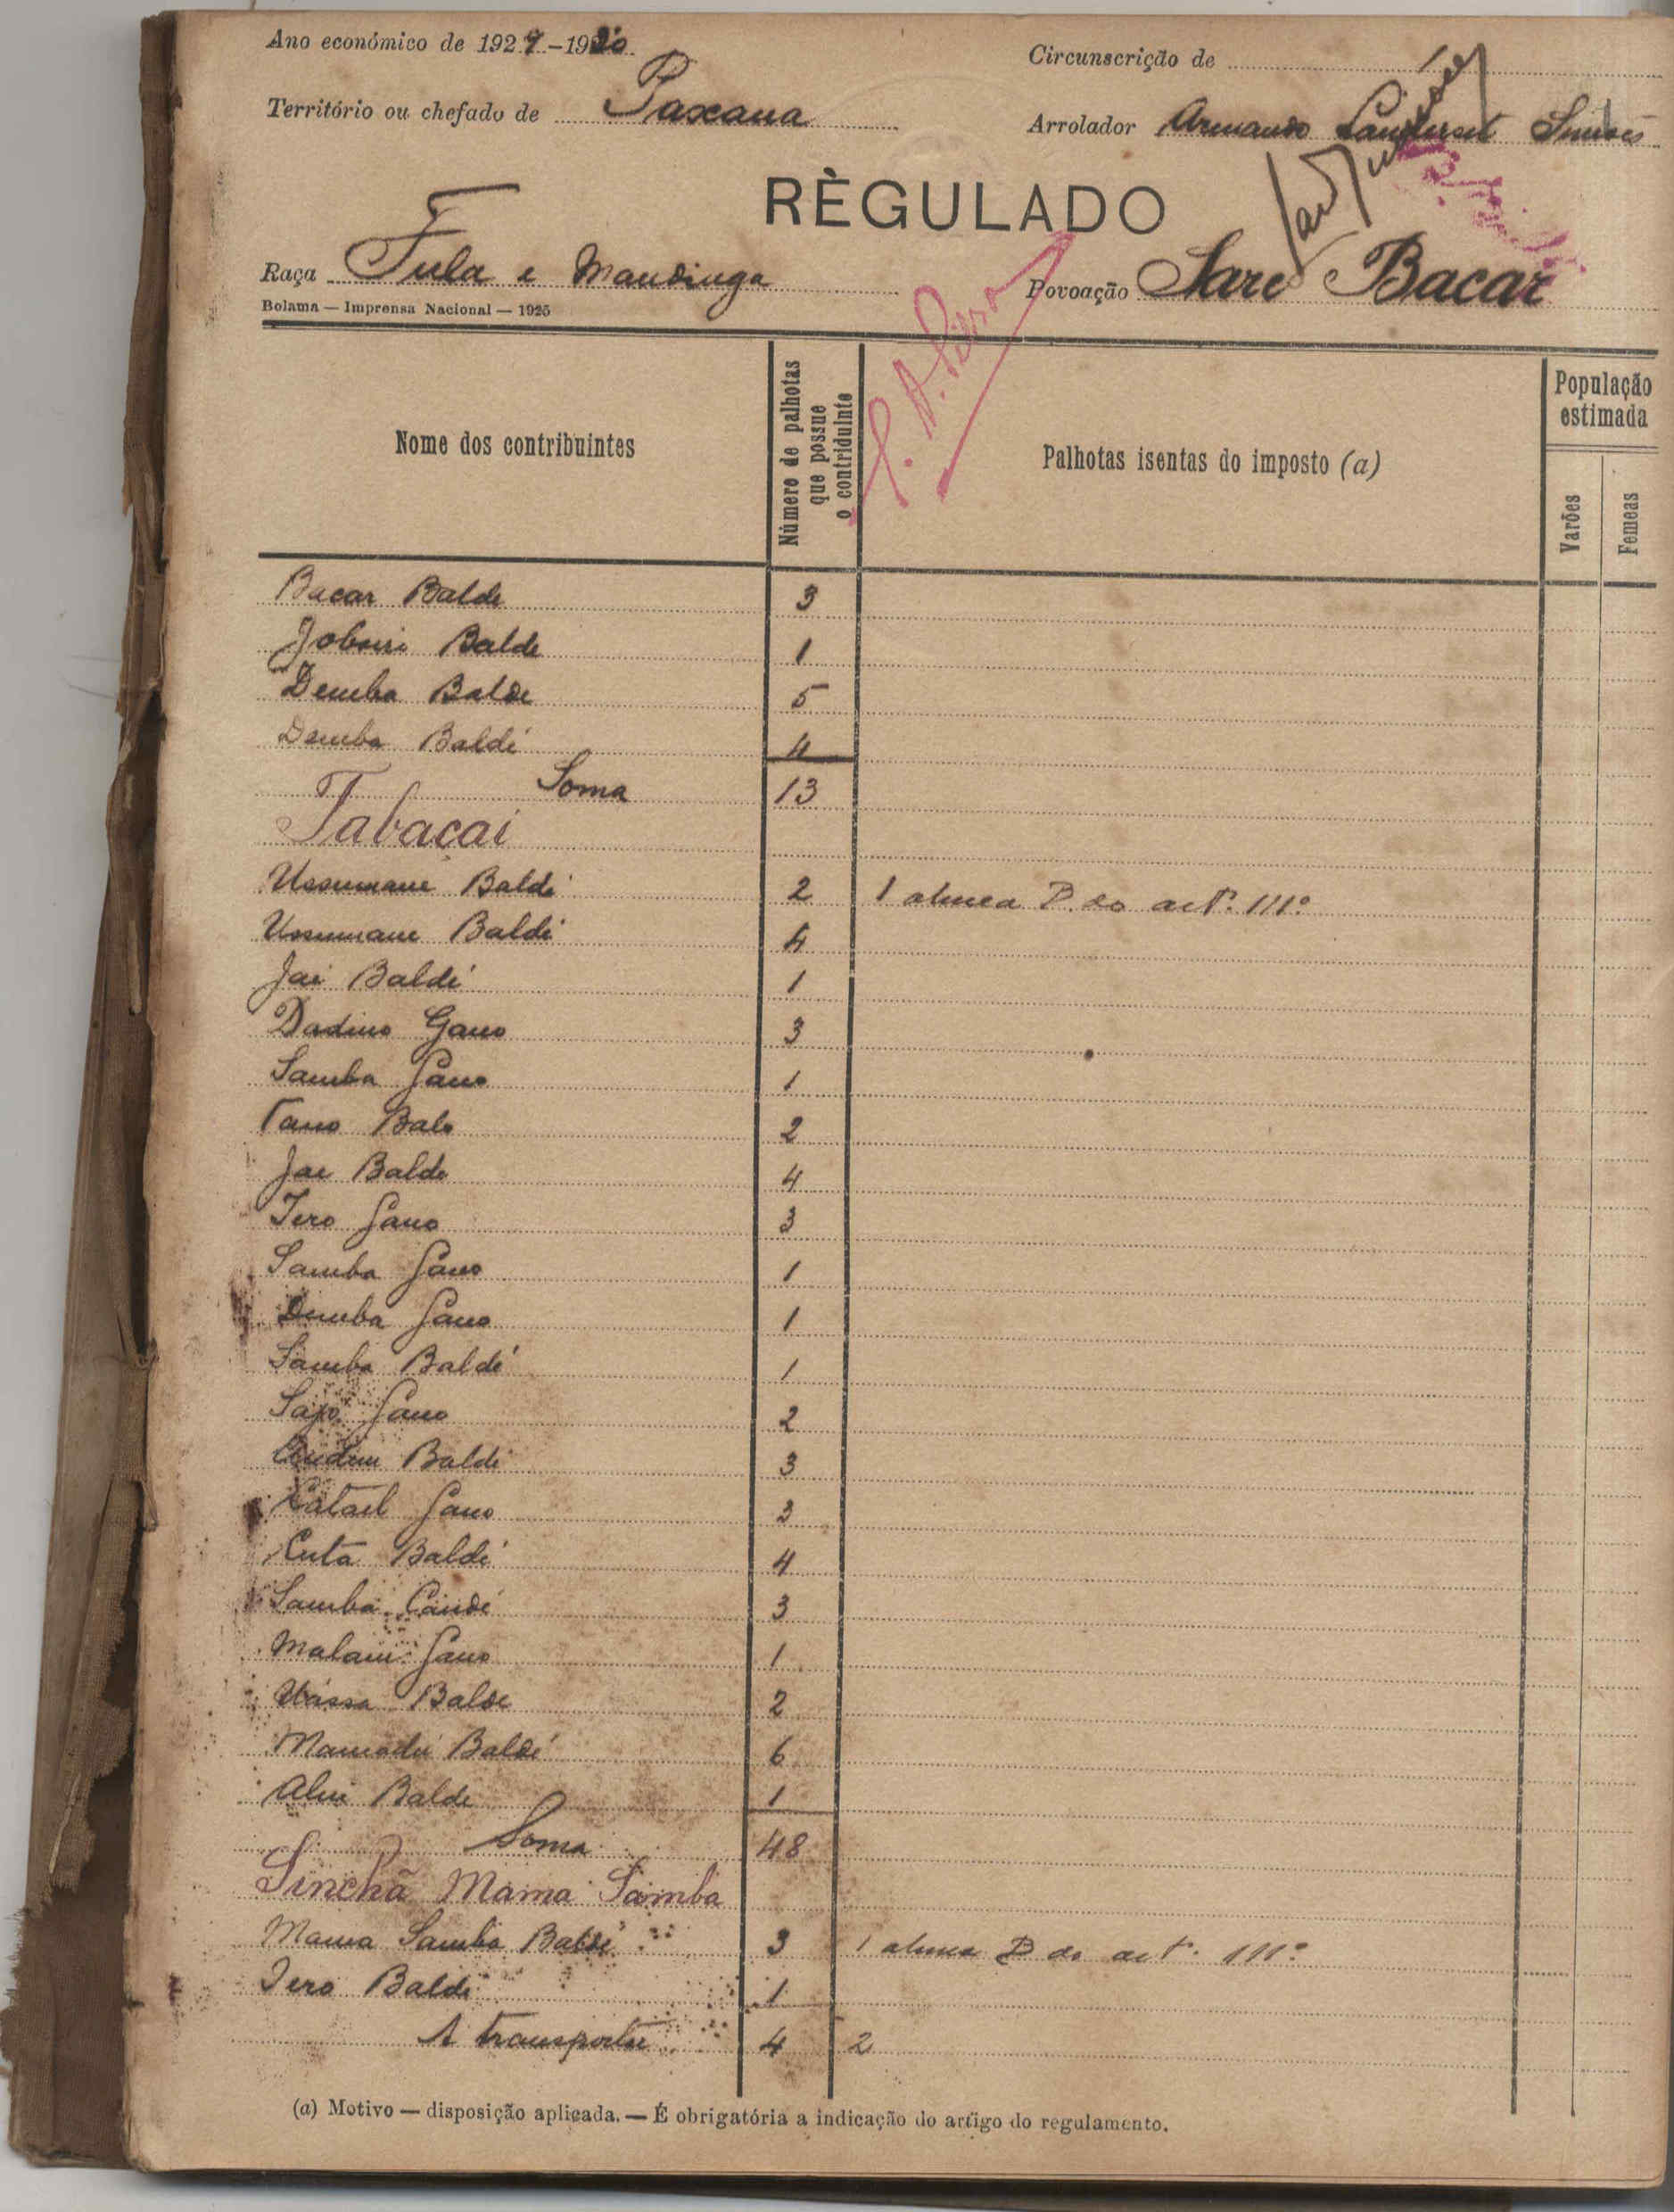 Ano económico de 1929-1930
Circunscrição de
Território ou chefado de Paxana
Arrolador Armando Landerset Simões
RÈGULADO
Raça Fula e Mandinga
Povoação Sare Bacar
Bolama — Imprensa Nacional — 1925
Nome dos contribuintes
Número de palhotas que possue o contriduinte
Palhotas isentas do imposto (a)
População estimada
Varões
Femeas
Bacar Balde 3
Balde 1
Demba Balde 5
Demba Baldé 4
Soma 13
Tabacai
Ussumane Baldé 2 1 alinea D. do artº. 111º
Ussumane Baldé 4
Jai Baldé 1
Dadino Gano 3
Samba Gano 1
Tano Balo 2
Jae Balde 4
Iero Gano 3
Samba Gano 1
Demba Gano 1
Samba Baldé 1
Gano 2
Baldé 3
Gano 3
Cuta Baldé 4
Samba Candé 3
Malam Gano 1
Balde 2
Mamadú Baldé 6
Balde 1
Soma 48
Sinchã Mama Samba
Mama Samba Baldé 3 1 alinea D do artº. 111º
Iero Baldé 1
A transportar 4 2
(a) Motivo — disposição aplicada. — É obrigatória a indicação do artigo do regulamento.